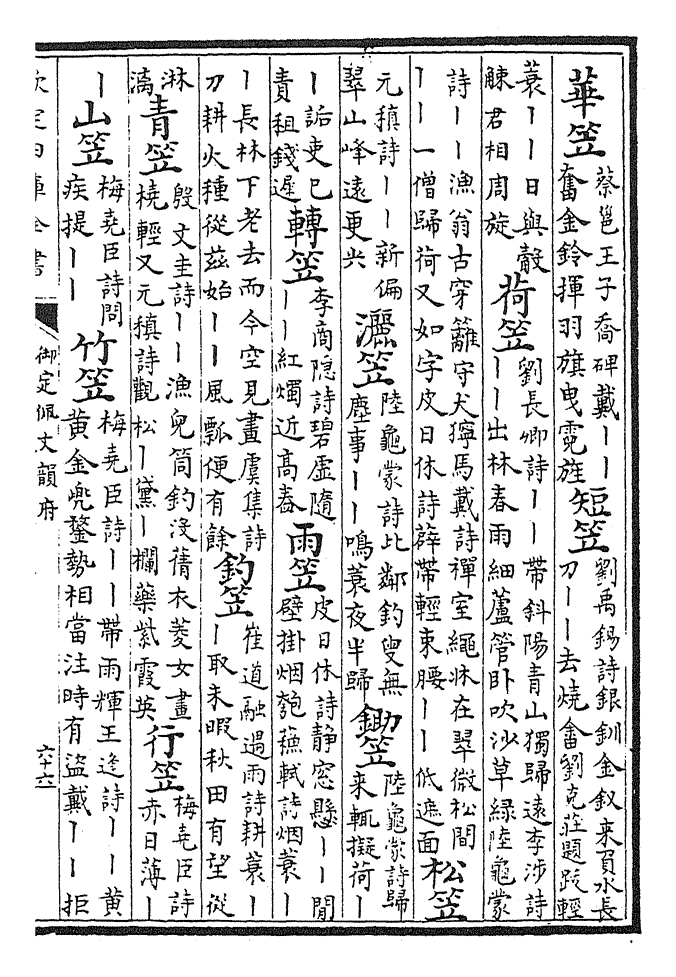 華笠
蔡邕王子喬碑戴丨丨
奮金鈴揮羽旗曳霓旌
短笠
劉禹錫詩銀釧金釵来負水長
刀丨丨去燒畬劉克莊題跋輕
蓑丨丨日與觳
觫君相周旋
荷笠
劉長卿詩丨丨帶斜陽青山獨歸遠李涉詩
丨丨出林春雨細蘆管卧吹沙草綠陸龜蒙
詩丨丨漁翁古穿籬守犬獰馬戴詩禪室繩牀在翠微松間
丨丨一僧歸荷又如字皮日休詩薜帶輕束腰丨丨低遮面
松笠
元稹詩丨丨新偏
翠山峰遠更尖
灑笠
陸龜蒙詩比鄰釣叟無
塵事丨丨鳴蓑夜半歸
鋤笠
陸龜蒙詩歸
来輒擬荷丨
丨詬吏已
責租錢遲
轉笠
李商隐詩碧虛隨
丨丨紅燭近高舂
雨笠
皮日休詩静窓懸丨丨閒
壁掛烟匏蘇軾詩烟蓑丨
丨長林下老去而今空見畫虞集詩
刀耕火種從茲始丨丨風瓢便有餘
釣笠
崔道融遇雨詩耕蓑丨
丨取未暇秋田有望從
淋
漓
青笠
殷文圭詩丨丨漁兒筒釣没蒨衣菱女畫
橈輕又元稹詩觀松丨黛丨欄藥紫霞英
行笠
梅堯臣詩
赤日薄丨
丨
山笠
梅堯臣詩問
疾提丨丨
竹笠
梅堯臣詩丨丨帶雨輝王逢詩丨丨黄
黄金兜鍪勢相當注時有盜戴丨丨拒
欽定四庫全書
御定佩文韻府
六十六